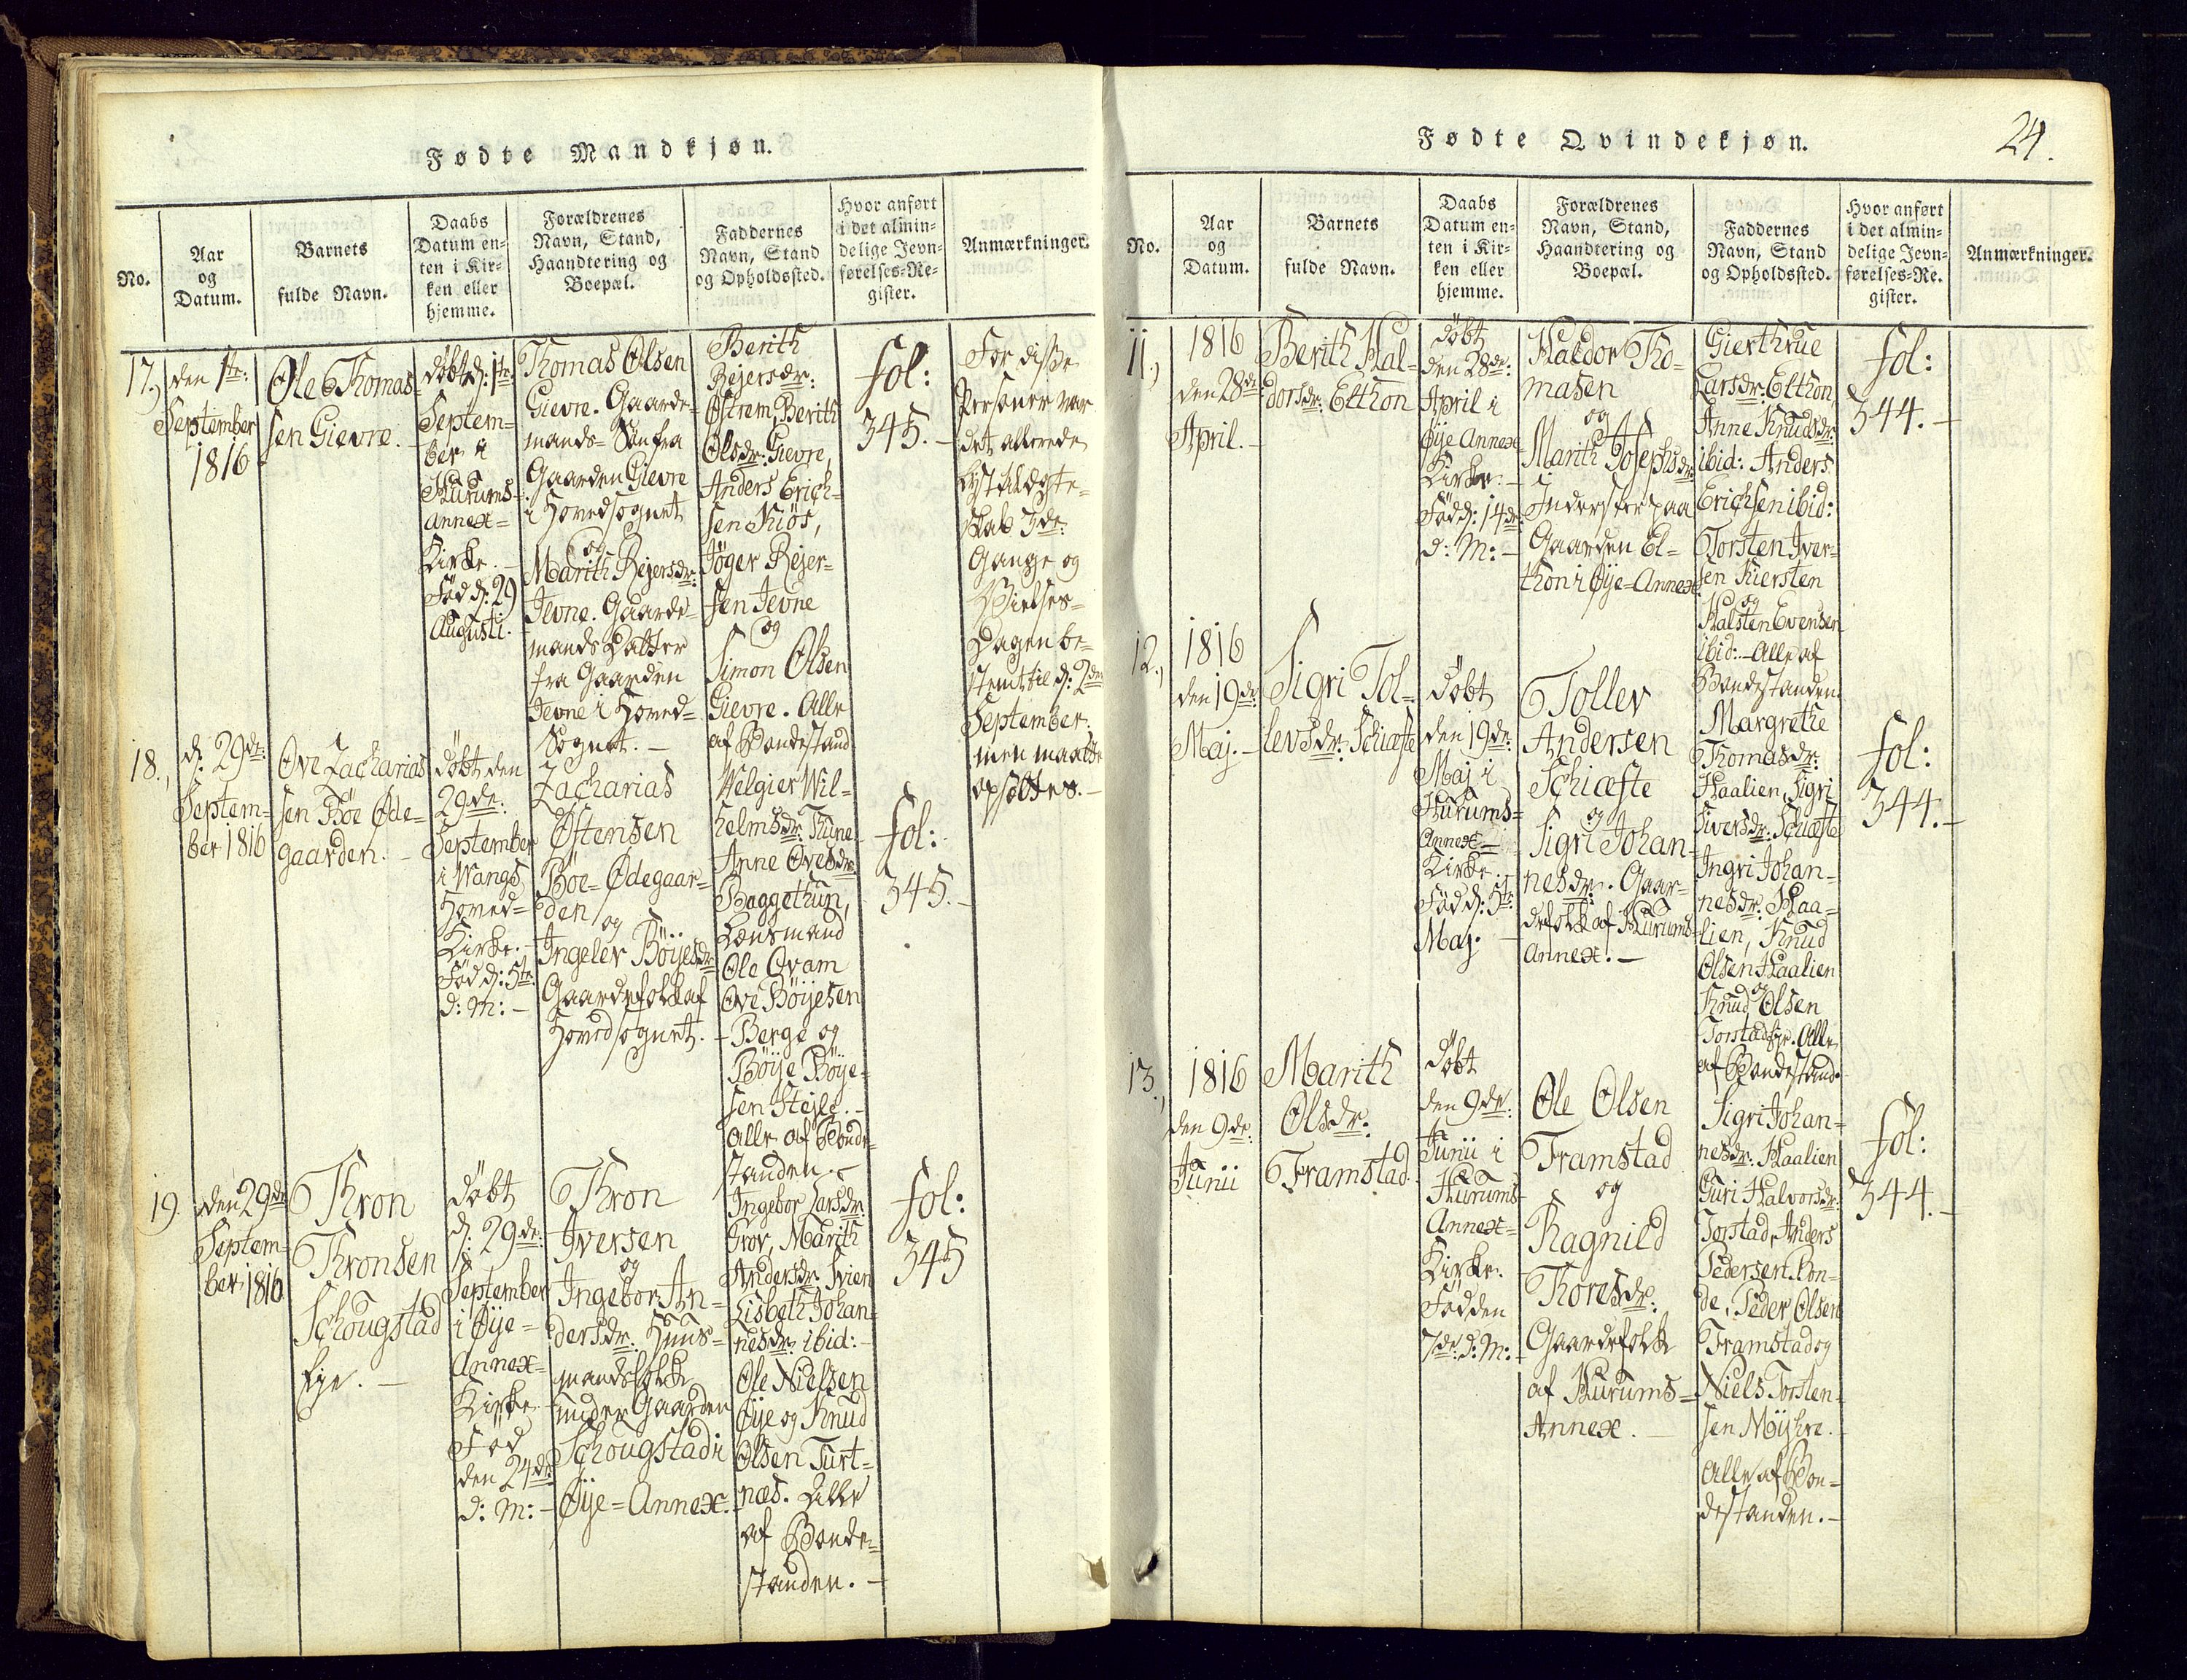 Fødte Mandkjøn.
No.
Aar
og
Datum.
Barnets
fulde Navn.
Daabs
Datum en-
ten i Kir-
ken eller
hjemme.
Forældrenes
Navn, Stand,
Haandtering og
Boepæl.
Faddernes
Navn, Stand
og Opholdssted.
Hvor anført
i det almin-
delige Jevn-
førelses-Re-
gister.
Anmærkninger.
17.,
den 1ste:
September
1816
Ole Thomas-
sen Gievre.
døbt d: 1ste
Septem-
ber i
Hurums-
Annex-
Kirke.
Fød d: 29
Augusti.
Thomas Olsen
Gievre. Gaarde-
mands-Søn fra
Gaarden Gievre
i Hovedsognet
og
Marith Rejersdr:
Jevne. Gaarde-
mands Datter
fra Gaarden
Jevne i Hoved-
Sognet. -
Berith
Rejersdr:
Østrem, Berith
Olsdr: Gievre,
Anders Erich-
sen Kiøs,
Jøger Rejer-
sen Jevne
og
Simon Olsen
Gievre. Alle
af Bondestand
fol:
345. -
For disse
Personer var
det allerede
lyst til Ægte-
skab 3de:
Gange og
Vielses-
Dagen be-
stemt til d: 2den
September:
men maatte
opsættes. -
18.,
d: 29de:
Septem-
ber 1816
Ove Zacharias
sen Bøe Øde-
gaarden. -
døbt den
29de:
September
i Wangs
Hoved-
Kirke. -
Fød d: 5te
d: M: -
Zacharias
Østensen
Bøe-Ødegaar-
den
og
Ingelev Böijesdr:
Gaardefolk af
Hovedsognet.
Velgier Wil-
helmsdr: Kune
Anne Ovesdr:
Baggethun,
Lensmand
Ole Qvam
Ove Böijesen
Berge og
Böije Böije-
sen Stejle. -
Alle af Bonde-
standen. -
fol:
345. -
19.
den 29de
Septem-
ber 1816
Thron
Thronsen
Schougstad
Eje. -
døbt
d: 29de:
September
i Øye-
Annex-
Kirke.
Fød
den 24de
d: M: -
Thron
Iversen
og
Ingebor An-
dersdr: Huus-
mandsfolk
under Gaarden
Schougstad i
Øije-Annex.
Ingebor Larsdr:
Grov, Marith
Andersdr: Svien
Lisbeth Johan-
nesdr: ibid: -
Ole Nielsen
Øije og Knud
Olsen Turt-
næs. Alle
af Bonde-
standen. -
fol:
345
Fødte Qvindekjøn.
24.
No.
Aar
og
Datum.
Barnets
fulde Navn.
Daabs
Datum en-
ten i Kir-
ken eller
hjemme.
Forældrenes
Navn, Stand,
Haandtering og
Boepæl.
Faddernes
Navn, Stand
og Opholdssted.
Hvor anført
i det almin-
delige Jevn-
førelses-Re-
gister.
Anmærkninger.
11.,
1816
den 28de
April. -
Berith Hal-
dorsdr: Elthon
døbt
den 28de:
April i
Øije Annex-
Kirke. -
Fød d: 14de
d: M: -
Haldor Tho-
masen
og
Marith Josephsdr:
Inderster paa
Gaarden El-
thon i Øije-Annex.
Gierthrue
Larsdr: Elthon,
Anne Knudsdr:
ibid: Anders
Erichsen ibid:
Torsten Iver-
sen Kiersten
og
Halsten Evensen
ibid: - Alle af
Bondestanden.
fol:
344. -
12.,
1816
den 19de
Maj. -
Sigri Tol-
levsdr: Schiefte
døbt
den 19de:
Maj i
Hurums-
Annex-
Kirke.
Fød d: 5te
Maj. -
Tollev
Andersen
Schiæfte
og
Sigri Johan-
nesdr: Gaar-
defolk af Hurums-
Annex. -
Margrethe
Thomasdr:
Haalien, Sigri
Siversdr: Schiefte
Ingri Johan-
nesdr: Haa-
lien, Knud
Olsen Haalien
og
Knud Olsen
Torstad. Alle
af Bondestand.
fol:
344. -
13.,
1816
den 9de:
Junii
Marith
Olsdr:
Framstad.
døbt
den 9de:
Junii i
Hurums-
Annex-
Kirke.
Fød den
7de: d: M: -
Ole Olsen
Framstad
og
Ragnild
Thoresdr:
Gaardefolk
af Hurums-
Annex. -
Sigri Johan-
nesdr: Haalien
Guri Halvorsdr:
Torstad, Anders
Pedersen Qon-
de, Peder Olsen
Framstad og
Niels Torsten-
sen Möijhre. -
Alle af Bon-
destanden. -
fol:
344. -